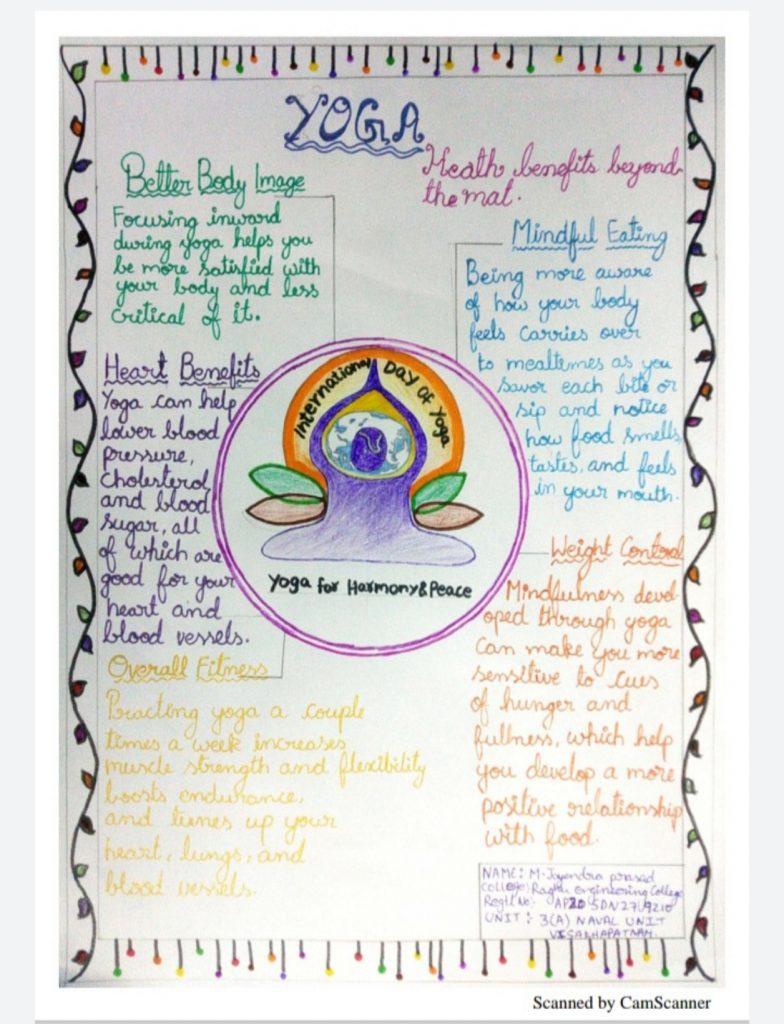 YOGA
Health benefits beyond
the mat.
Better Body Image
Focusing inward
during yoga helps you
be more satisfied with
your body and less
critical of it.
Mindful Eating
Being more aware
of how your body
feels carries over
to mealtimes as you
savor each bite or
sip and notice
how food smells,
tastes, and feels
in your mouth.
Heart Benefits
Yoga can help
lower blood
pressure,
cholesterol,
and blood
sugar, all
of which are
good for your
heart and
blood vessels.
International Day of Yoga
Yoga for Harmony & Peace
Weight Control
Mindfulness devel
oped through yoga
can make you more
sensitive to cues
of hunger and
fullness, which help
you develop a more
positive relationship
with food.
Overall Fitness
Practing yoga a couple
times a week increases
muscle strength and flexibility
boosts endurance,
and tunes up your
heart, lungs, and
blood vessels.
NAME: M. Jayendra prasad
College: Raghu engineering College
Regtl No:-
UNIT:- 3(A) NAVAL UNIT
Scanned by CamScanner